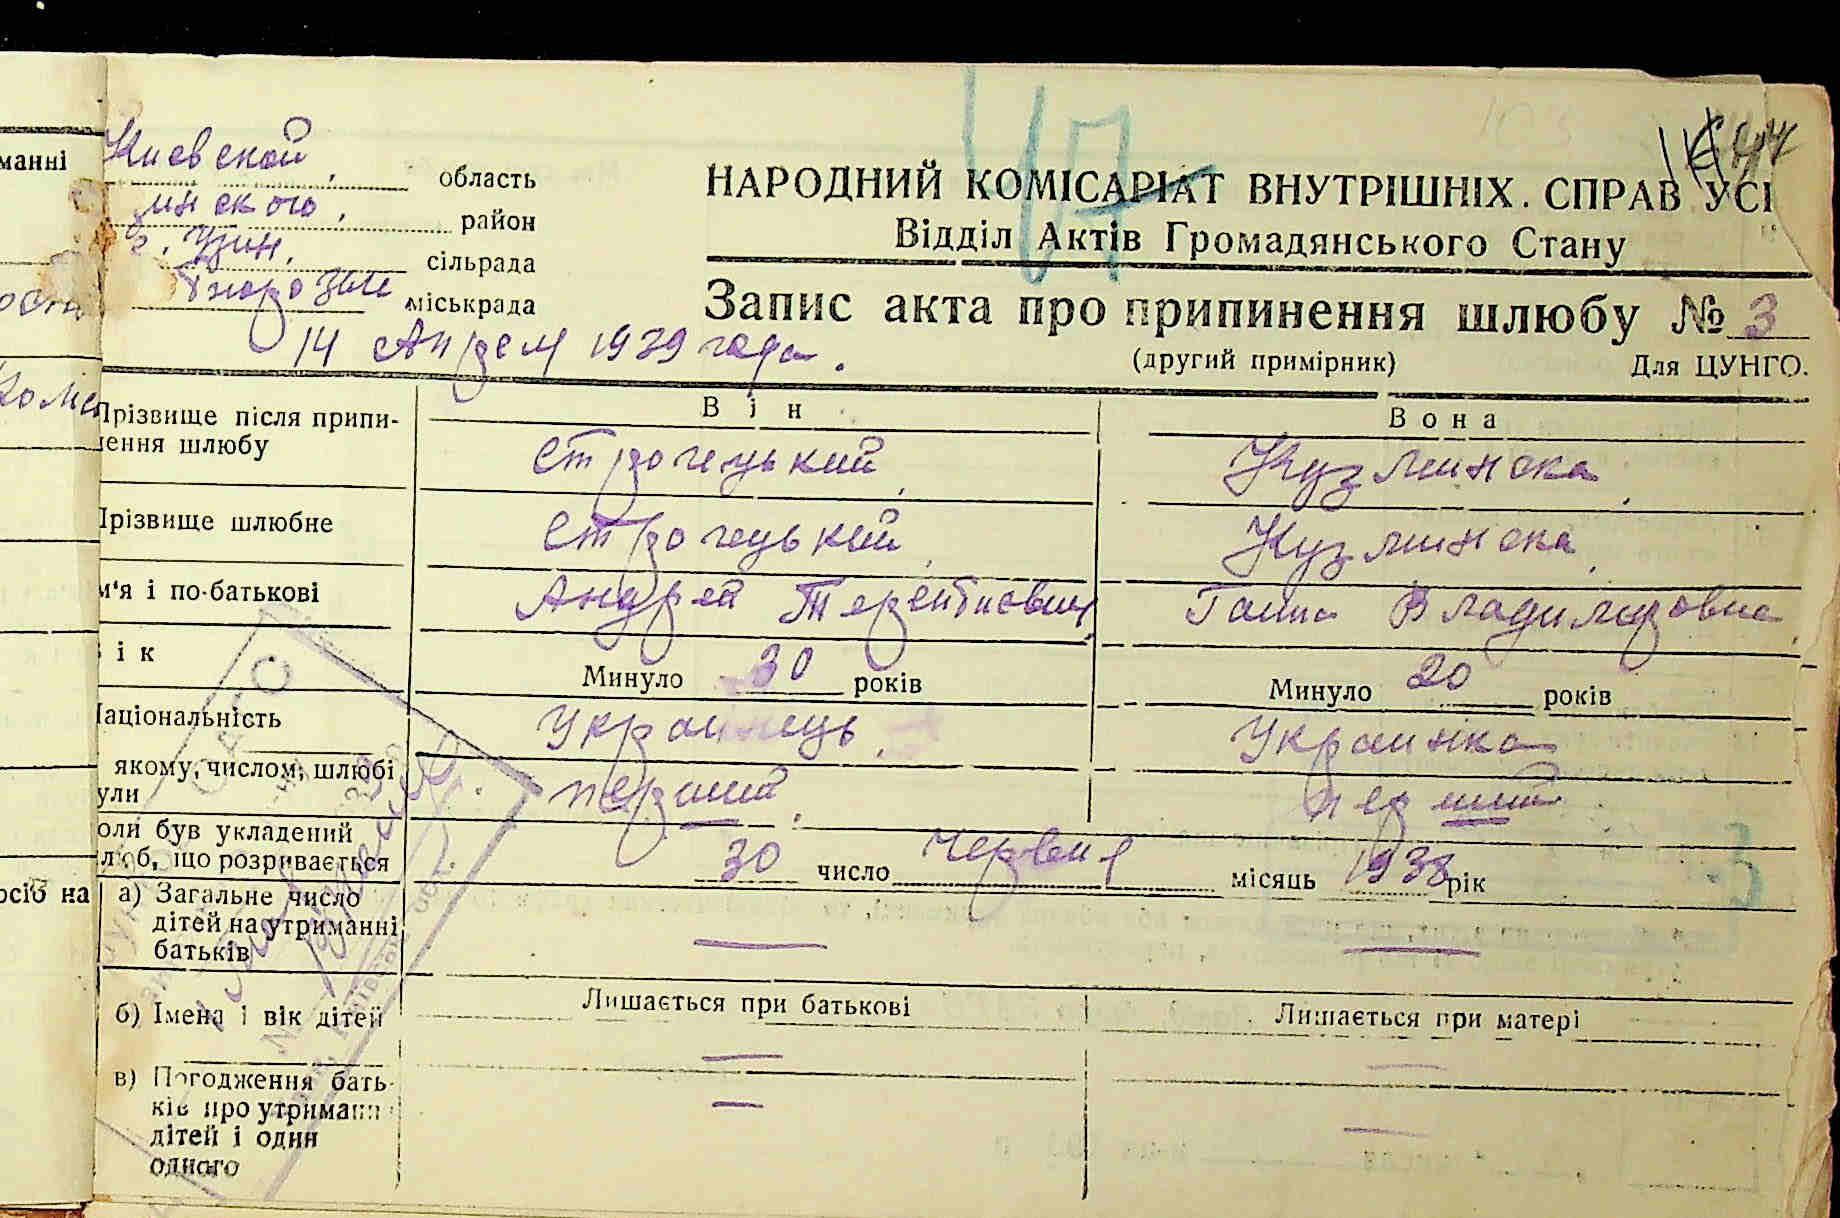 Киевской, область
район
г. Узин, сільрада
бюро ЗАГС міськрада
НАРОДНИЙ КОМІСАРІАТ ВНУТРІШНІХ СПРАВ УСІ
Відділ Актів Громадянського Стану
Запис акта про припинення шлюбу № 3
14 Апреля 1939 года.
(другий примірник) Для ЦУНГО.
Він Вона
Прізвище після припи-
нення шлюбу
Строчецький, Кузминска,
Прізвище шлюбне Строчецький, Кузминска,
м'я і по-батькові Андрей Терентиевич Ганна Владимировна
ік Минуло 30 років Минуло 20 років
аціональність Украинець. Украинка
якому, числом, шлюбі
ули перший. перший
оли був укладений
люб, що розривається 30 число Червня місяць 1938 рік
а) Загальне число
дітей на утриманні
батьків
б) Імена і вік дітей Лишається при батькові Лишається при матері
в) Погодження бать-
ків про утриманн
дітей і один
одного
манні
осіб на